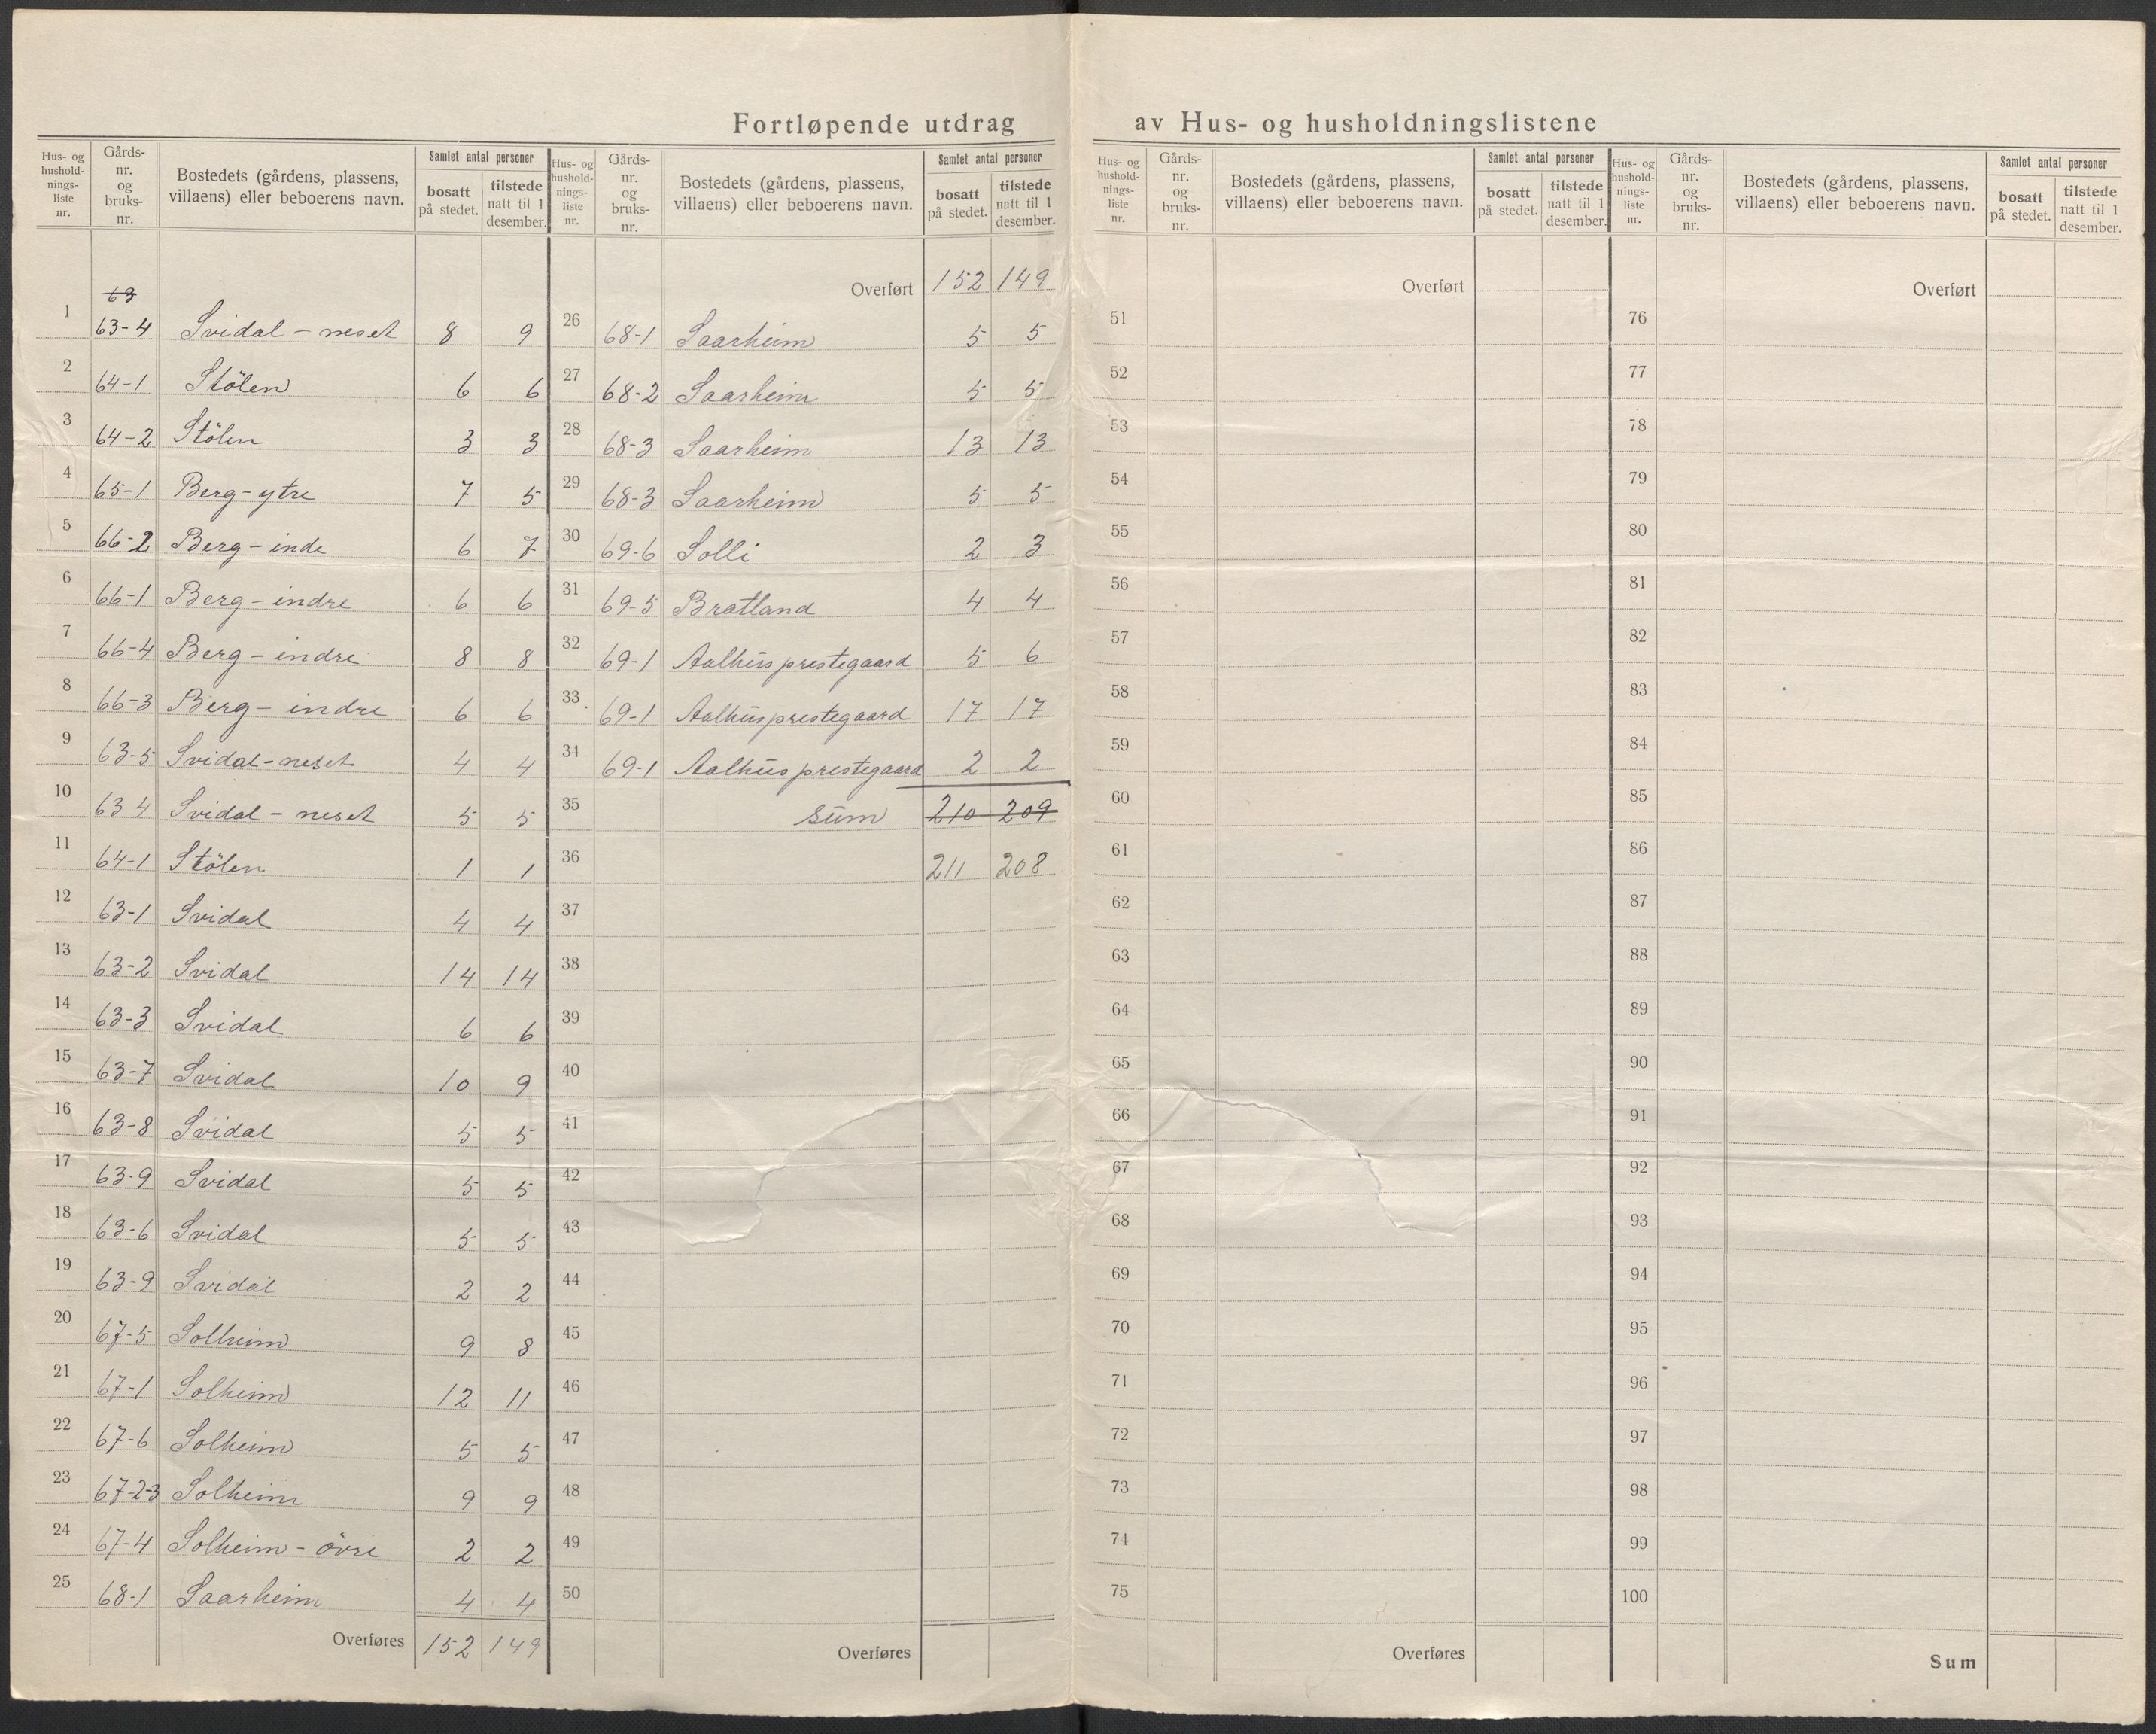 Fortløpende utdrag av Hus- og husholdningslistene
Hus- og hushold-nings-liste nr. Gårds-nr. og bruks-nr. Bostedets (gårdens, plassens, villaens) eller beboerens navn. Samlet antal personer bosatt på stedet. tilstede natt til 1 desember.
63
1 63-4 Svidal - neset 8 9
2 64-1 Stölen 6 6
3 64-2 Stölen 3 3
4 65-1 Berg-ytre 7 5
5 66-2 Berg-inde 6 7
6 66-1 Berg-indre 6 6
7 66-4 Berg-indre 8 8
8 66-3 Berg-indre 6 6
9 63-5 Svidal-neset 4 4
10 63 4 Svidal - neset 5 5
11 64-1 Stölen 1 1
12 63-1 Svidal 4 4
13 63-2 Svidal 14 14
14 63-3 Svidal 6 6
15 63-7 Svidal 10 9
16 63-8 Svidal 5 5
17 63-9 Svidal 5 5
18 63-6 Svidal 5 5
19 63-9 Svidal 2 2
20 67-5 Solheim 9 8
21 67-1 Solheim 12 11
22 67-6 Solheim 5 5
23 67-2-3 Solheim 9 9
24 67-4 Solheim - övre 2 2
25 68-1 Saarheim 4 4
Overføres 152 149
Hus- og hushold-nings-liste nr. Gårds-nr. og bruks-nr. Bostedets (gårdens, plassens, villaens) eller beboerens navn. Samlet antal personer bosatt på stedet. tilstede natt til 1 desember.
Overført 152 149
26 68-1 Saarheim 5 5
27 68-2 Saarheim 5 5
28 68-3 Saarheim 13 13
29 68-3 Saarheim 5 5
30 69-6 Solli 2 3
31 69-5 Bratland 4 4
32 69-1 Aalhus prestegaard 5 6
33 69-1 Aalhus prestegaard 17 17
34 69-1 Aalhus prestegaard 2 2
35 sum 210 209
36 211 208
37
38
39
40
41
42
43
44
45
46
47
48
49
50
Overføres
Hus- og hushold-nings-liste nr. Gårds-nr. og bruks-nr. Bostedets (gårdens, plassens, villaens) eller beboerens navn. Samlet antal personer bosatt på stedet. tilstede natt til 1 desember.
Overført
51
52
53
54
55
56
57
58
59
60
61
62
63
64
65
66
67
68
69
70
71
72
73
74
75
Overføres
Hus- og hushold-nings-liste nr. Gårds-nr. og bruks-nr. Bostedets (gårdens, plassens, villaens) eller beboerens navn. Samlet antal personer bosatt på stedet. tilstede natt til 1 desember.
Overført
76
77
78
79
80
81
82
83
84
85
86
87
88
89
90
91
92
93
94
95
96
97
98
99
100
Sum